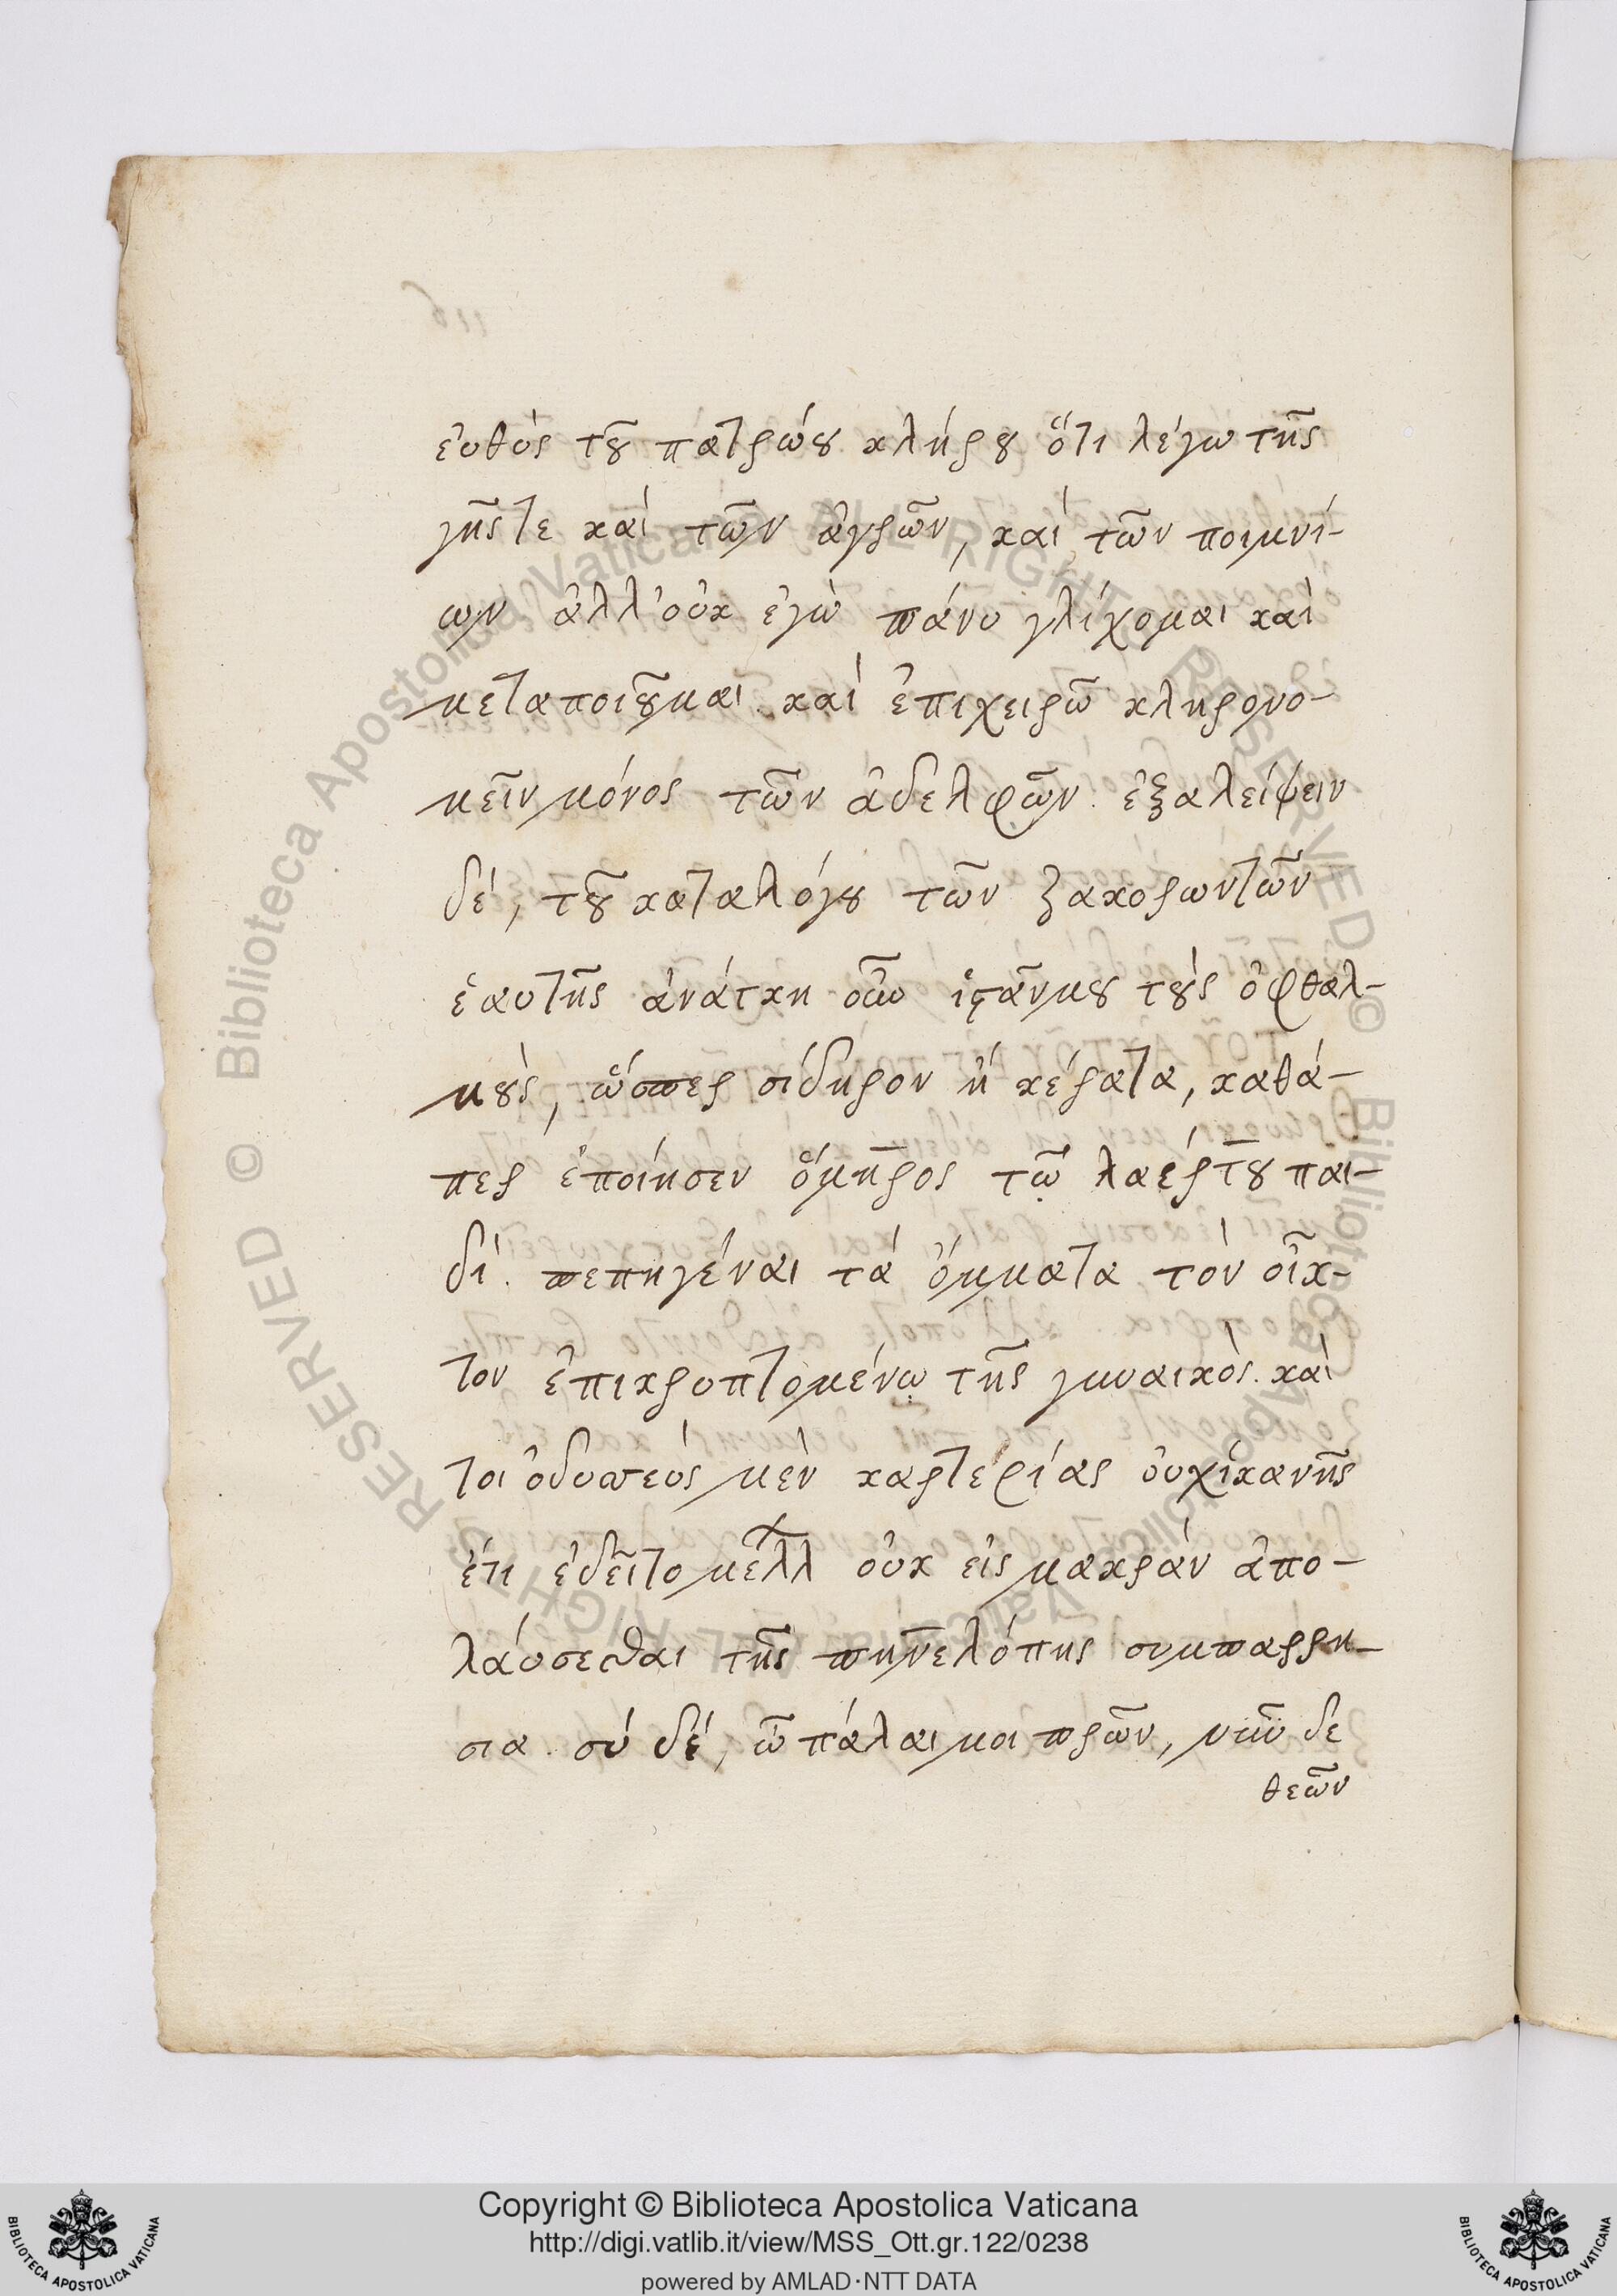 εὐθὺς τοῦ πατρώου κλήρου ὅτι λέγω τῆς
γῆς τε καὶ τῶν ἀγρῶν, καὶ τῶν ποιμνί-
ων ἀλλ' οὐκ ἐγὼ πάνυ γλίχομαι καὶ
μεταποιοῦμαι. καὶ ἐπιχειρῶ κληρονο-
μεῖν μόνος τῶν ἀδελφῶν. ἐξαλείψειν
δέ, τοῦ καταλόγου τῶν ζακορωντῶν
ἑαυτῆς ἀνάγκη οὖν ἱστᾶν μου τοὺς ὀφθαλ-
μοὺς, ὥσπερ σίδηρον ἢ κέρατα, καθά-
περ ἐποίησεν ὅμηρος τῷ λαέρτου παι-
δί. πεπηγέναι τὰ ὄμματα τὸν οἶκ-
τον ἐπικρυπτομένῳ τῆς γυναικὸς. καί
τοι ὀδυσσεὺς μὲν καρτερίας οὐχ ἱκανῆς
ἔτι ἐδεῖτο μέλλ οὐκ εἰς μακρὰν ἀπο-
λάυσεσθαι τῆς πηνελόπης συμπαρρη-
σια. σύ δέ, ὦ πάλαι μοι πρῶν, νῦν δε
θεῶν
Copyright © Biblioteca Apostolica Vaticana
http://digi.vatlib.it/view/MSS_Ott.gr.122/0238
powered by AMLAD·NTT DATA
BIBLIOTECA APOSTOLICA VATICANA
BIBLIOTECA APOSTOLICA VATICANA